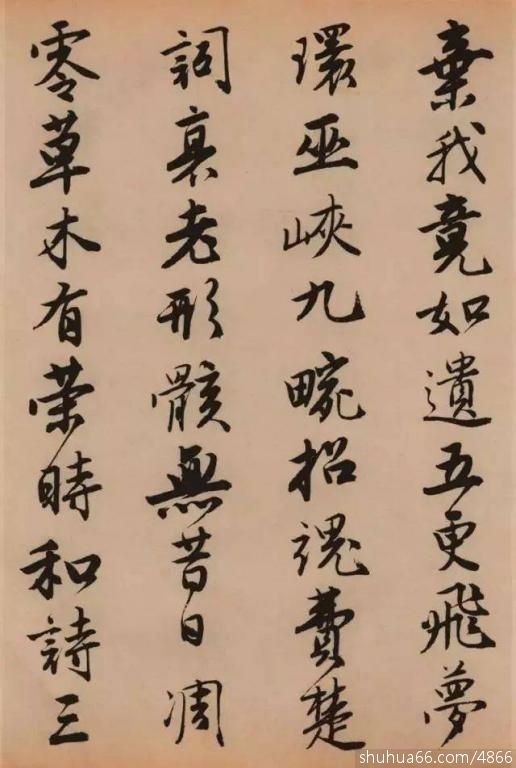 棄我竟如遺五更飛夢
環巫峽九畹招魂費楚
詞衰老形骸無昔日凋
零草木有榮時和詩三
shuhua66.com/4866